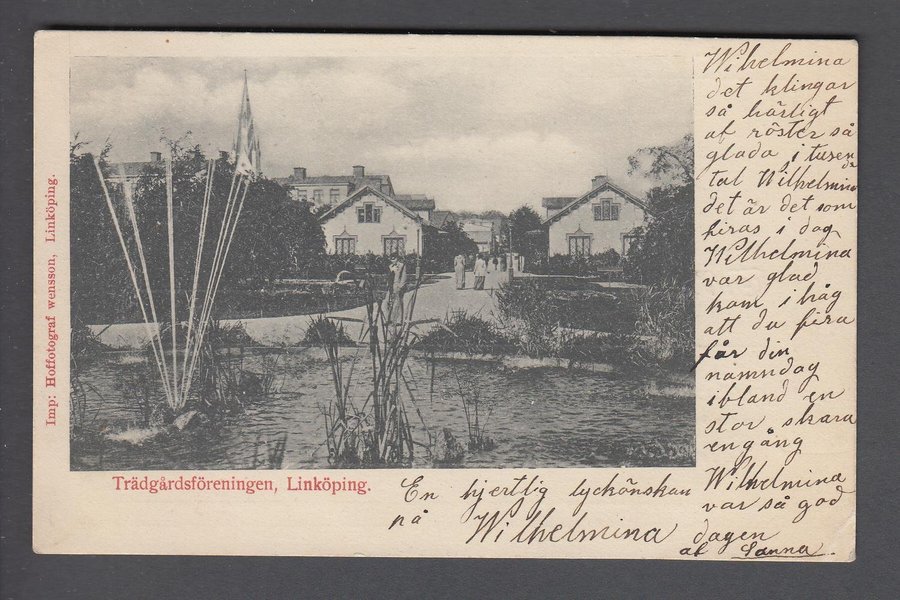 Imp: Hoffotograf wensson, Linköping.
Trädgårdsföreningen, Linköping.
Wilhelmina
det klingar
så härligt
af röster så
glada i tusen
tal Wilhelmin
det är det som
firas i dag
Wilhelmina
var glad
kom ihåg
att du fira
får din
namnsdag
ibland en
stor skara
engång
Wilhelmina
var så god
En hjertlig lyckönskan
på Wilhelmina
dagen
af Sanna.